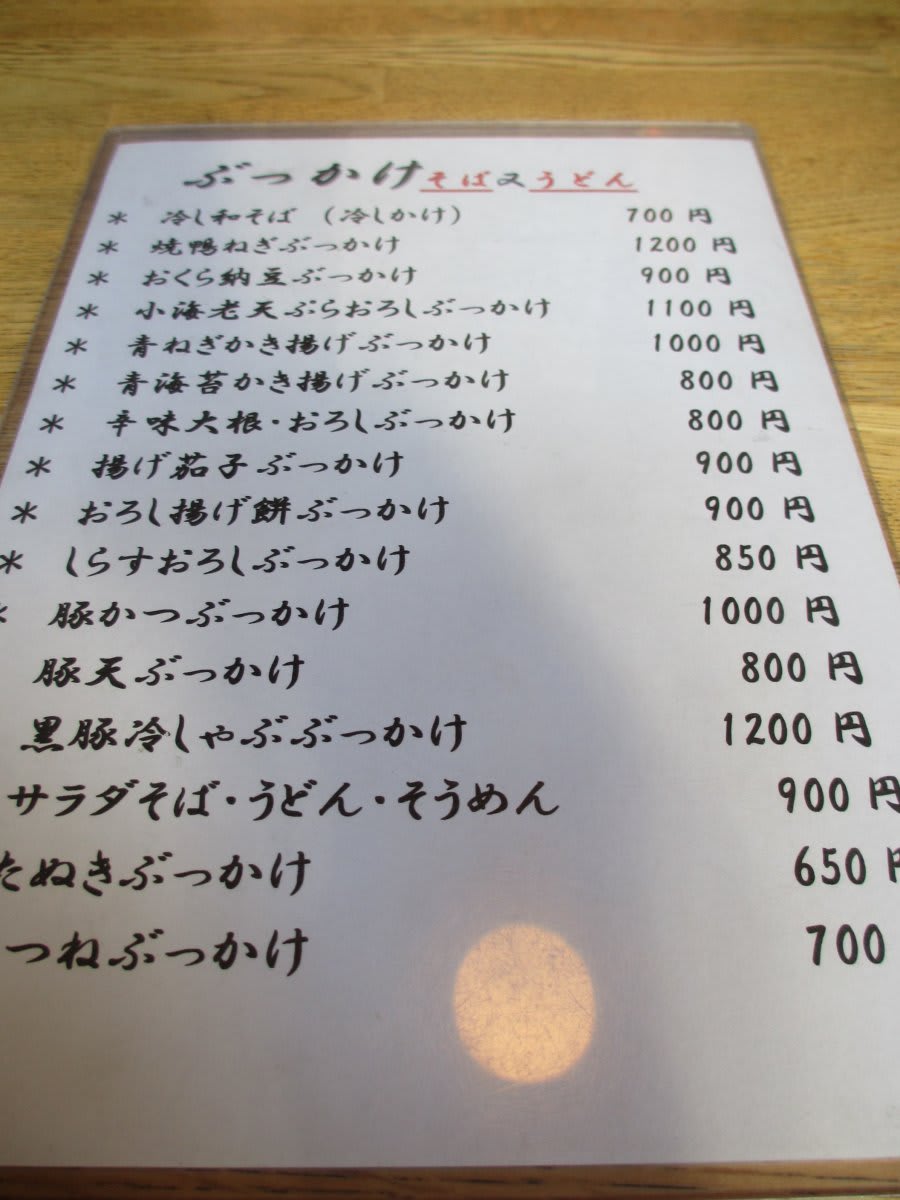 ぶっかけそば又うどん
＊ 冷し和そば （冷しかけ） 700 円
＊ 焼鴨ねぎぶっかけ 1200 円
＊ おくら納豆ぶっかけ 900 円
＊ 小海老天ぷらおろしぶっかけ 1100 円
＊ 青ねぎかき揚げぶっかけ 1000 円
＊ 青海苔かき揚げぶっかけ 800 円
＊ 辛味大根・おろしぶっかけ 800 円
＊ 揚げ茄子ぶっかけ 900 円
＊ おろし揚げ餅ぶっかけ 900 円
＊ しらすおろしぶっかけ 850 円
＊ 豚かつぶっかけ 1000 円
豚天ぶっかけ 800 円
黒豚冷しゃぶぶっかけ 1200 円
サラダそば・うどん・そうめん 900 円
たぬきぶっかけ 650 円
つねぶっかけ 700